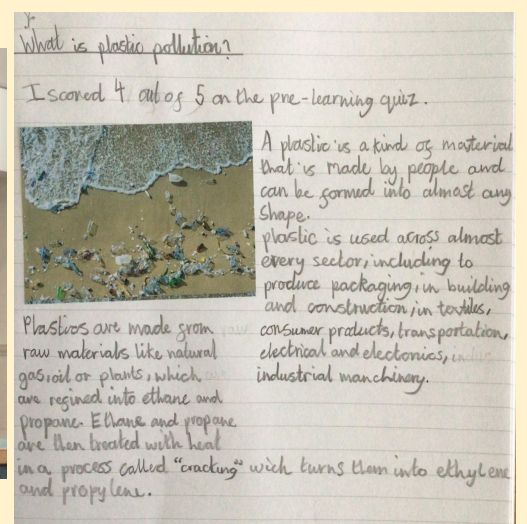 What is plastic pollution?
I scored 4 out of 5 on the pre-learning quiz.
A plastic is a kind of material
that is made by people and
can be formed into almost any
shape.
plastic is used across almost
every sector, including to
produce packaging, in building
and construction, in textiles,
consumer products, transportation,
electrical and electonics, in
industrial manchinery.
Plastics are made from
raw materials like natural
gas, oil or plants, which
are refined into ethane and
propane. Ethane and propane
are then treated with heat
in a process called "cracking" wich turns them into ethylene
and propylene.